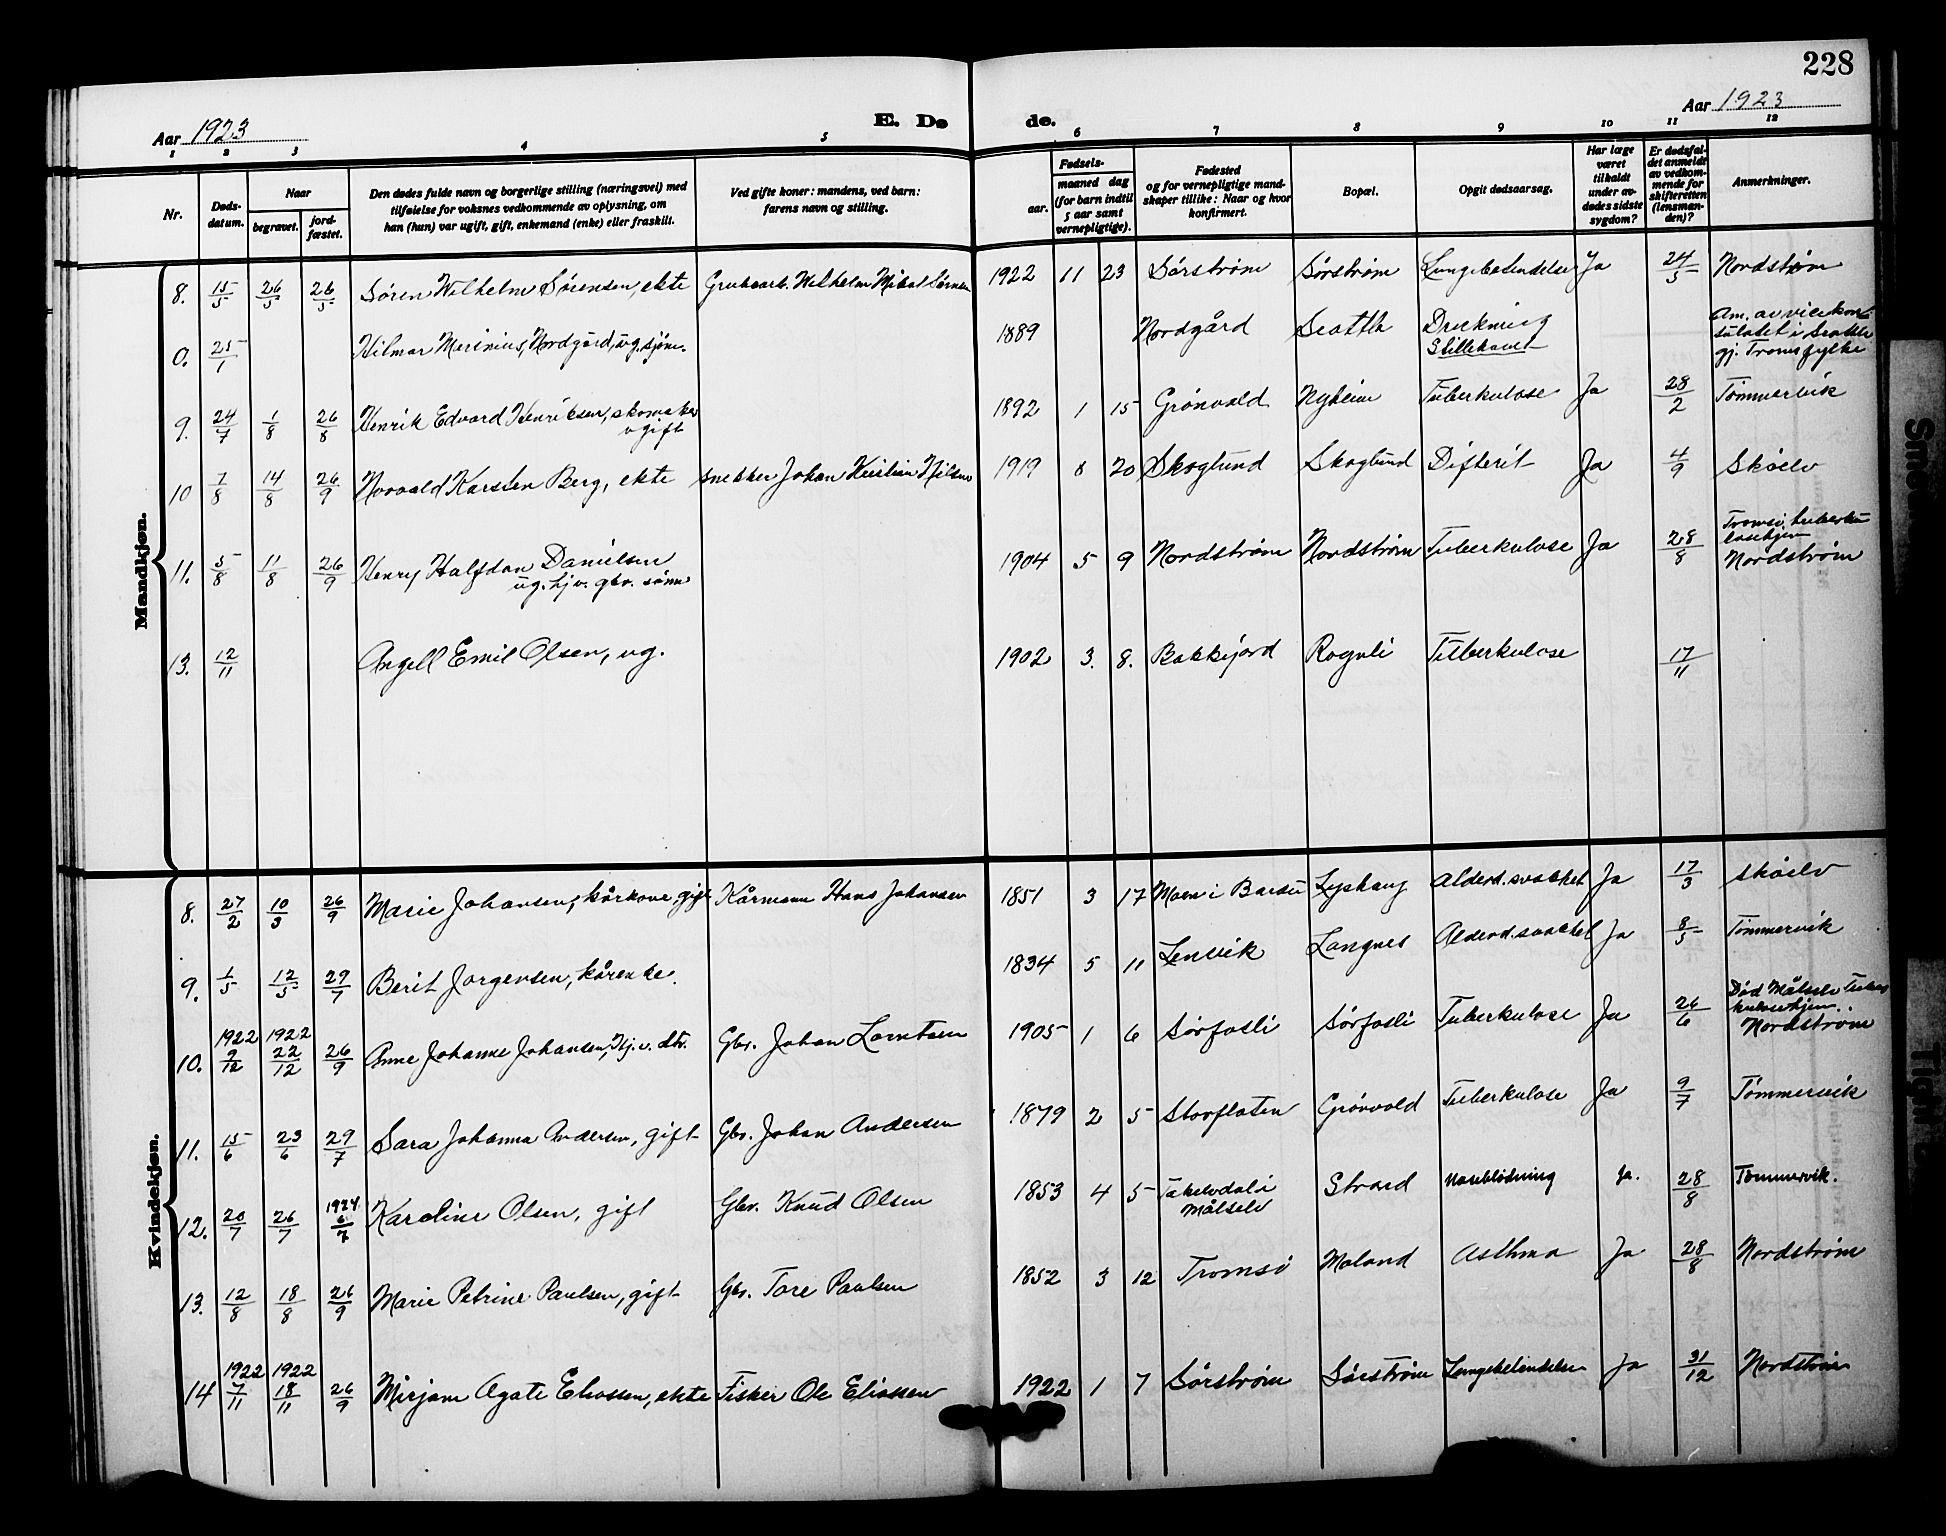 228
Aar 1923
E. Dø
de.
Aar 1923
1 2 3 4 5 6 7 8 9 10 11 12
Nr.
Døds-
datum.
Naar
begravet.
jord-
fæstet.
Den dødes fulde navn og borgerlige stilling (næringsvei) med
tilføielse for voksnes vedkommende av oplysning, om
han (hun) var ugift, gift, enkemand (enke) eller fraskilt.
Ved gifte koner: mandens, ved barn:
farens navn og stilling.
Fødsels-
aar.
maaned dag
(for barn indtil
5 aar samt
vernepligtige).
Fødested
og for vernepligtige mand-
skaper tillike: Naar og hvor
konfirmert.
Bopæl.
Opgit dødsaarsag.
Har læge
været
tilkaldt
under av-
dødes sidste
sygdom?
Er dødsfal-
det anmeldt
av vedkom-
mende for
skifteretten
(lensman-
den)?
Anmerkninger.
Mandkjøn.
8. 15/5 26/5 26/5 Søren Wilhelm Sørensen, ekte Grubearb. Wilhelm Mikal Sørensen 1922 11 23 Sørstrøm Sørstrøm Lungebetendelse Ja 24/5 Nordstrøm
0. 25/1 Hilmar Merinius, Nordgård, ug. sjøm. 1889 Nordgård Seattle Drukning
Stillehavet
Am. av vicekon-
sulatet i Seattle
gj. Troms fylke
9. 24/7 1/8 26/8 Henrik Edvard Henriksen, skomaker
ugift
1892 1 15 Grønvold Nyheim Tuberkulose Ja 28/2 Tømmervik
10 7/8 14/8 26/9 Norvald Karsten Berg, ekte snekker Johan Kristian Nilsen 1919 8 20 Skoglund Skoglund Difterit Ja 4/9 Skøelv
11. 5/8 11/8 26/9 Henry Halfdan Danielsen
ug. hjv. gbr. sønn
1904 5 9 Nordstrøm Nordstrøm Tuberkulose Ja 28/8 Tromsø tuberku
losehjem
Nordstrøm
13. 12/11 Angell Emil Olsen, ug. 1902 3. 8. Bakkejord Rognli Tuberkulose 17/11
Kvindekjøn.
8. 27/2 10/3 26/9 Marie Johansen, kårkone, gift Kårmann Hans Johansen 1851 3 17 Moen i Bardu Lyshaug Alderd.svakhet Ja 17/3 Skøelv
9. 1/5 12/5 29/7 Berit Jørgensen, kårenke. 1834 5 11 Lenvik Langnes Alderd.svakhet Ja 8/5 Tømmervik
1922 1922
10. 9/12 22/12 26/9 Anne Johanne Johansen, Hj.v. dtr. Gbr. Johan Lorntsen 1905 1 6 Sørfosli Sørfosli Tuberkulose Ja 26/6 Død Målselv Tuber
kulosehjem..
Nordstrøm
11. 15/6 23/6 29/7 Sara Johanna Andersen, gift Gbr. Johan Andersen 1879 2 5 Storflaten Grønvold Tuberkulose Ja 9/7 Tømmervik
12. 20/7 26/7 1924 6/7 Karoline Olsen, gift Gbr. Knud Olsen 1853 4 5 Takelvdal i
Målselv
Strand Hjerneblødning Ja. 28/8 Tømmervik.
13. 12/8 18/8 26/9 Marie Petrine Paulsen, gift Gbr. Tore Paulsen 1852 3 12 Tromsø Moland Asthma Ja 28/8 Nordstrøm
1922 1922
14 7/11 18/11 26/9 Mirjam Agate Eliassen, ekte Fisker Ole Eliassen 1922 1 7 Sørstrøm Sørstrøm Lungebetendelse Ja 31/12 Nordstrøm